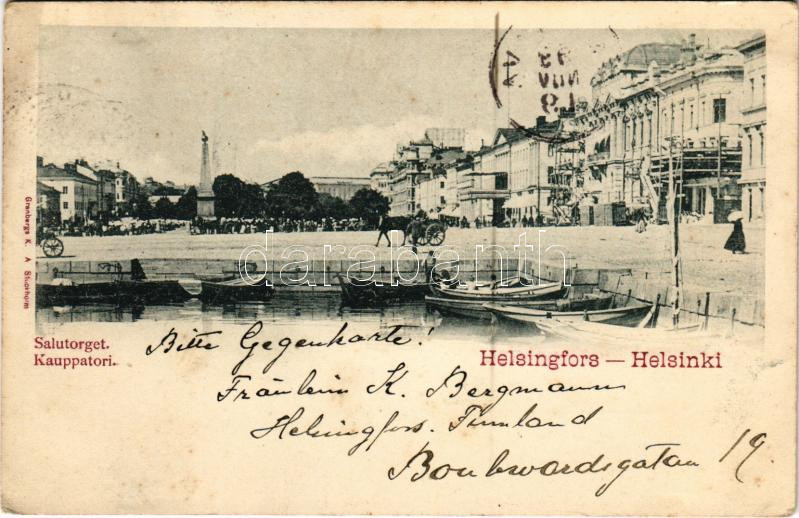 Granbergs K. A. Stockholm
Salutorget.
Kauppatori.
Helsingfors — Helsinki
Bitte Gegenkarte!
Fräulein K. Bergmann
Helsingfors. Finnland
Boulewardsgatan 19
darabanth